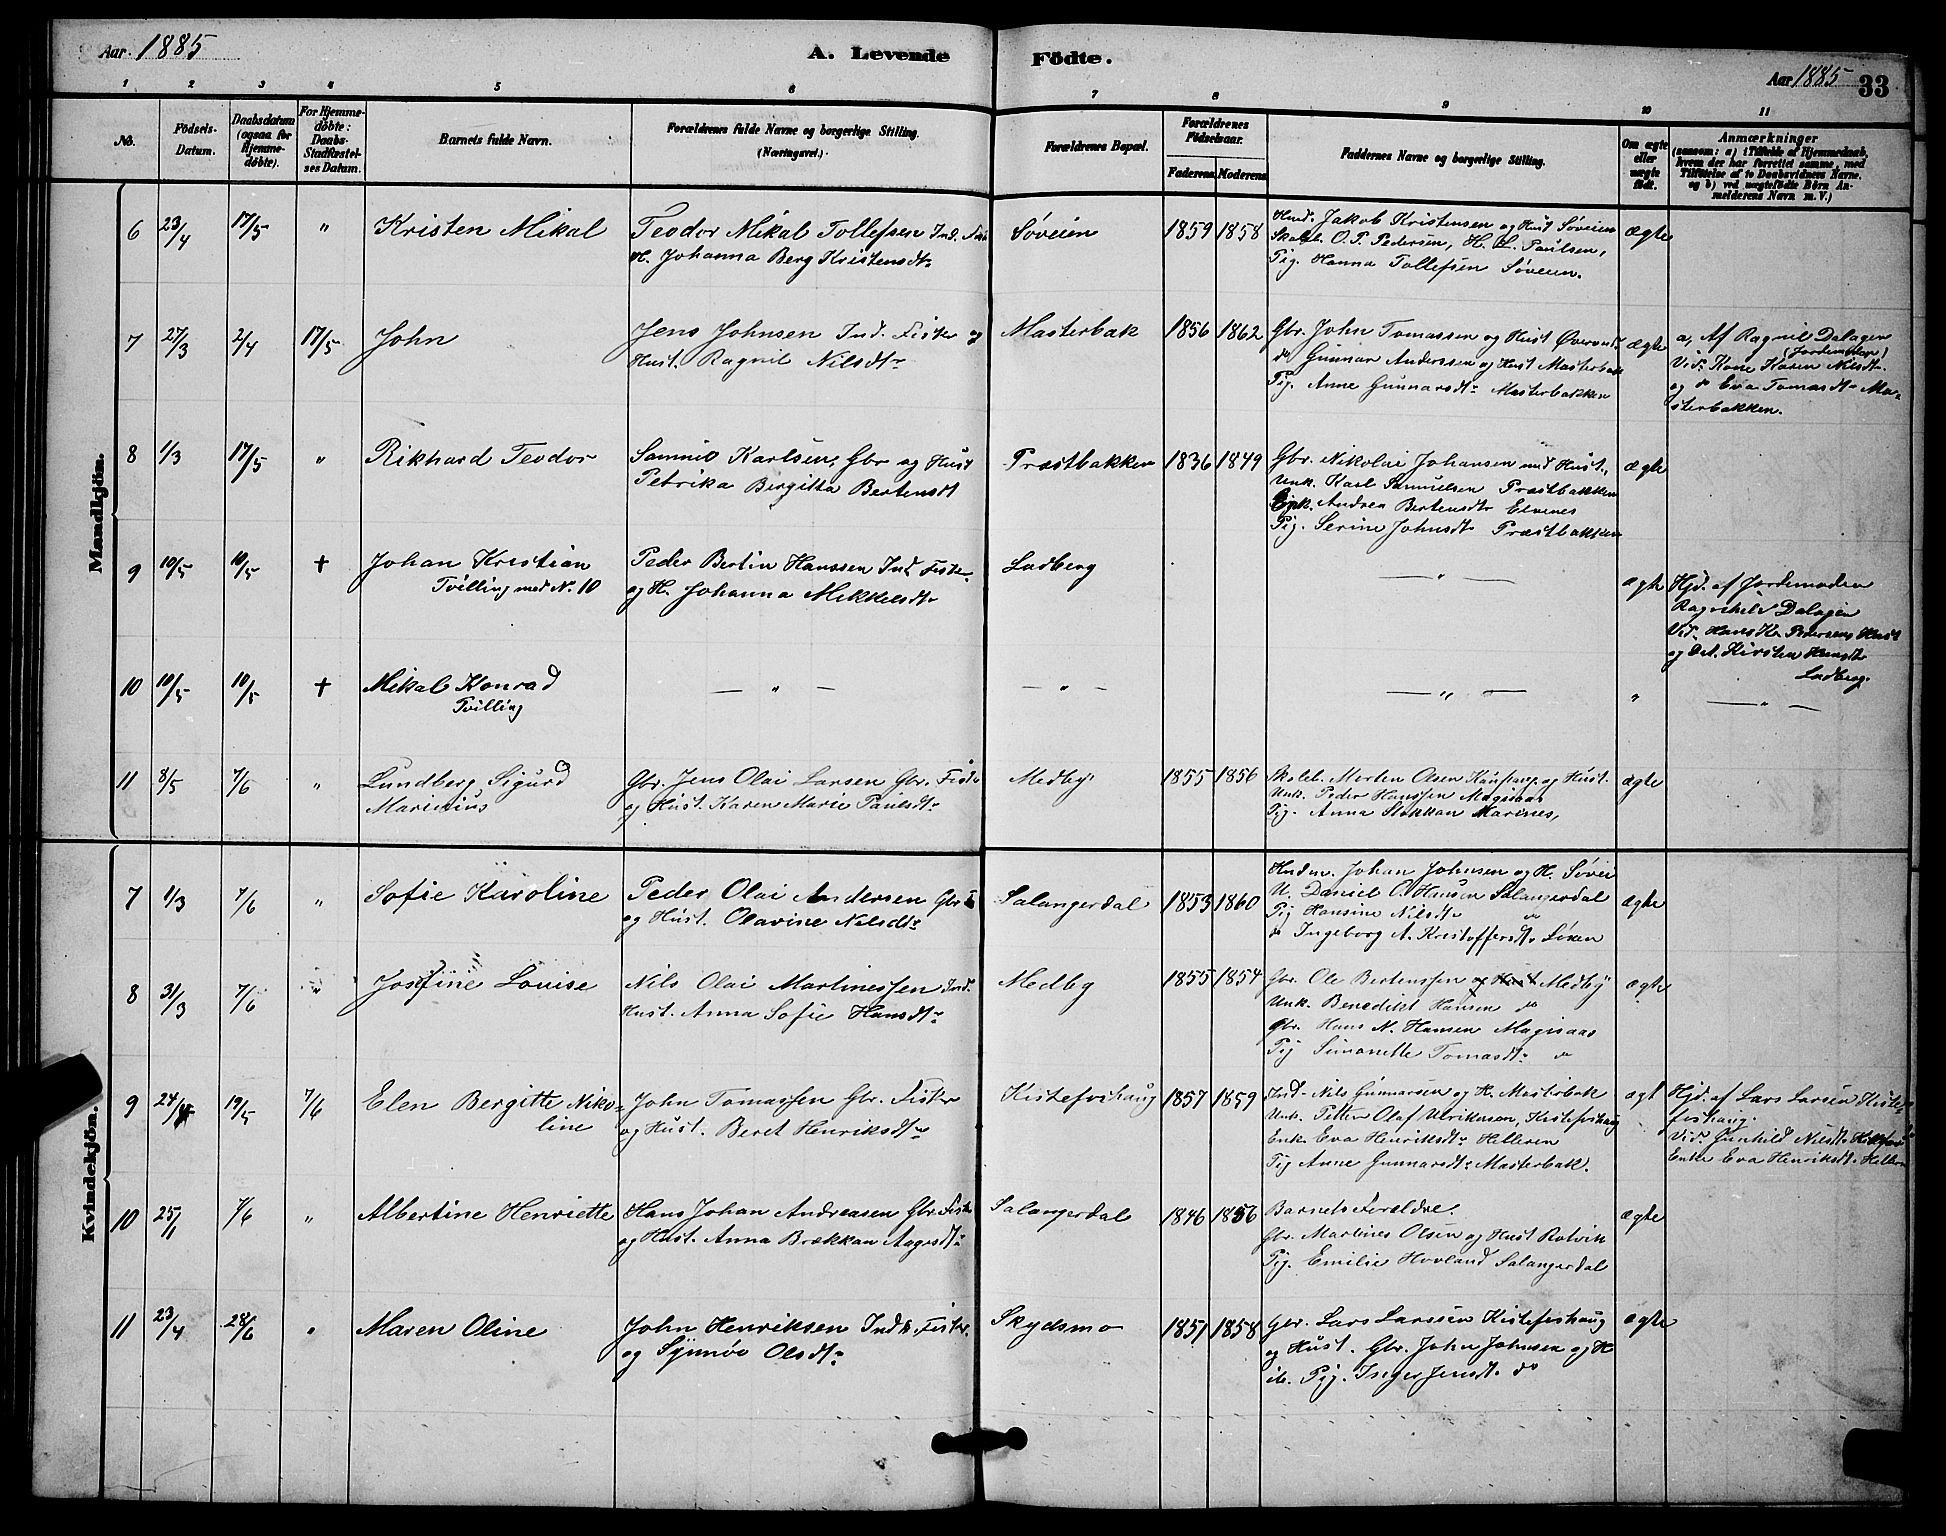 Aar. 1885
A. Levende Födte.
Aar 1885 33
1 2 3 4 5 6 7 8 9 10 11
No.
Födsels-Datum.
Daabsdatum (ogsaa for Hjemme-döbte).
For Hjemme-döbte: Daabs-Stadfæstel-ses Datum.
Barnets fulde Navn.
Forældrenes fulde Navne og borgerlige Stilling. (Næringsvei.)
Forældrenes Bopæl.
Forældrenes Födselsaar.
Faderens. Moderens.
Faddernes Navne og borgerlige Stilling.
Om ægte eller uægte födt.
Anmærkninger
(saasom: a) i Tilfælde af Hjemmedaab,
hvem der har forrettet samme, med
Tilföielse af to Daabsvidners Navne.
og b) ved uægtefödte Börn An-
melderens Navn m. V.)
Mandkjön.
6 23/4 17/5 " Kristen Mikal
Teodor Mikal Tollefsen Ind. Fisk
H. Johanna Berg Kristensdtr
Søveien 1859 1858
Husm. Jakob Kristensen og Hust Søveien
Skolel. O. P. Pedersen, H. L. Paulsen,
Pig. Hanna Tollefsen Søveien.
ægte
7 27/3 2/4 17/5 John
Jens Johnsen Ind. Fisker og
Hust. Ragnil Nilsdtr
Masterbak 1856 1862
Gbr. John Tomassen og Hust
do Gunnar Anderssen og Hust Masterbak
Pig. Anne Gunnarsdtr Masterbakken
ægte
a, Af Ragnil Dalagen
(Jordemoder)
Vid. Kone Karen Nilsdtr
og do Eva Tomasdtr Ma-
sterbakken.
8 1/3 17/5 " Rikhard Teodor
Samuel Karlsen, Gbr og Hust
Petrika Bergitta Bertensdt
Præstbakken 1836 1849
Gbr. Nikolai Johansen med Hust.,
Unk. Karl Samuelsen Præstbakken
Andrea Bertensdtr Elvenes
Pig. Serine Johnsdtr Præstbakken
ægte
9 10/5 10/5 + Johan Kristian
Tvilling med N. 10
Peder Bertin Hanssen Ind. Fisker
og H. Johanna Mikkelsdtr
Ladberg
— " —
ægte
Hjd. af Jordemoder
Ragnhild Dalagen
Vid. Hans K. Pedersens Hust
og Kirsten
Ladberg.
10 10/5 10/5 + Mikal Konrad
Tvilling
— " — — " — — " — " — " —
11 8/5 7/6 " Lundberg Sigurd
Marinius
Gbr. Jens Olai Larsen Gbr. Fisk
og Hust. Karen Marie Paulsdtr
Medby 1855 1856
Skolel. Morten Olsen og Hust.
Unk. Peder Hanssen Magisaas
Pig. Anna Stokkan Marines,
ægte
Kvindekjön.
7 1/3 7/6 " Sofie Karoline
Peder Olai Andersen Gbr. F
og Hust. Olavine Nilsdtr
Salangerdal 1853 1860
Husm. Johan Johnsen og H. Søvei
U. Daniel O. Hansen Salangerdal
Pig Hansine Nilsdtr do
do Ingeborg A. Kristoffersdtr
ægte
8 31/3 7/6 " Josefine Louise
Nils Olai Martinessen Ind.
Hust. Anna Sofie Hansdtr
Medby 1855 1854
Gbr. Ole Bertenssen og Hust Medby
Unk. Benedikt Hansen do
Gbr. Hans N. Hansen Magisaas
Pig Simonette Tomasdtr do
ægte
9 24/4 19/5 7/6 Elen Bergitte Niko-
line
John Tomassen Gbr. Fisker
og Hust. Beret Henriksdtr
Kistefoshaug 1857 1859
Ind. Nils Gunnarsen og H. Masterbak
Unk. Petter Olaf Ulriksen, Kistefoshaug
Enk. Eva Henriksdtr Helleren
Pig Anne Gunnarsdtr Masterbak.
ægt
Hjd. af Lars Larsen Kiste-
foshaug.
Vid. Gunhild Nilsdtr
Enke Eva Henriksdtr Heller
10 25/1 7/6 " Albertine Henriette
Hans Johan Andreasen Gbr. Fisker
og Hust. Anna Brækkan Aagesdtr
Salangerdal 1846 1856
Barnets Forældre.
Gbr. Martines Olsen og Hust Rotvik
Pig. Emilie Hovland Salangerdal
ægte
11 23/4 28/6 " Maren Oline
John Henriksen Indr. Fisker.
og Synnøv Olsdtr
Skydsmo 1851 1858
Gbr. Lars Larsen Kistefoshaug
og Hust. Gbr. John Johnsen og H
ib. Pig. Inger Jensdtr do
ægte